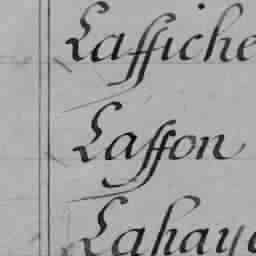 Laffiche
Laffon
Lahaye